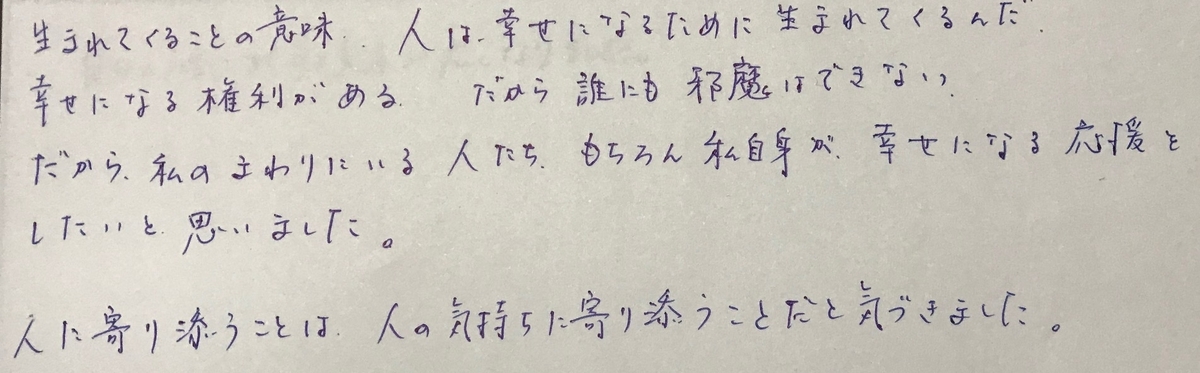 生まれてくることの意味. 人は.幸せになるために生まれてくるんだ.
幸せになる権利がある. だから誰にも邪魔はできない.
だから.私のまわりにいる人たち.もちろん私自身が.幸せになる応援を
したいと.思いました。
人に寄り添うことは.人の気持ちに寄り添うことだと気づきました。